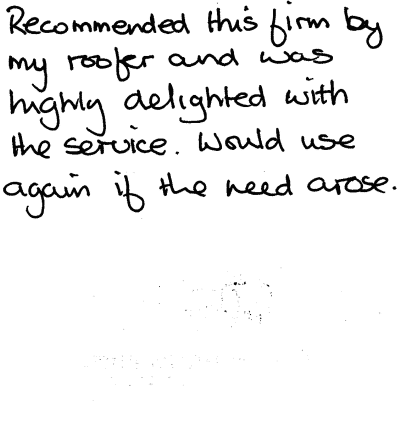 Recommended this firm by
my roofer and was
highly delighted with
the service. Would use
again if the need arose.